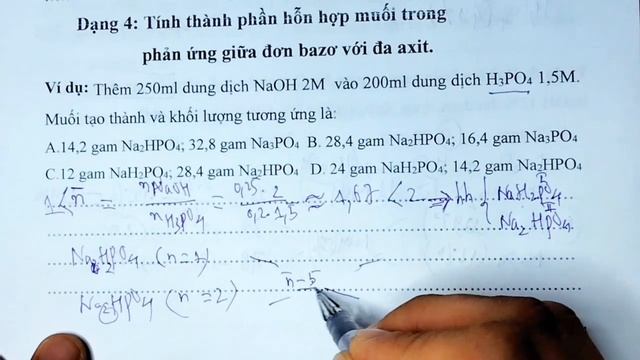 Dạng 4: Tính thành phần hỗn hợp muối trong
phản ứng giữa đơn bazơ với đa axit.
Ví dụ: Thêm 250ml dung dịch NaOH 2M vào 200ml dung dịch H₃PO₄ 1,5M.
Muối tạo thành và khối lượng tương ứng là:
A.14,2 gam Na₂HPO₄; 32,8 gam Na₃PO₄ B. 28,4 gam Na₂HPO₄; 16,4 gam Na₃PO₄
C.12 gam NaH₂PO₄; 28,4 gam Na₂HPO₄ D. 24 gam NaH₂PO₄; 14,2 gam Na₂HPO₄
1 < n̄ = nNaOH / nH₃PO₄ = 0,25. 2 / 0,2. 1,5 ≈ 1,67 < 2 ⇒ hh { NaH₂PO₄
Na₂HPO₄
(n = 1)
(n = 2)
n̄ – 5